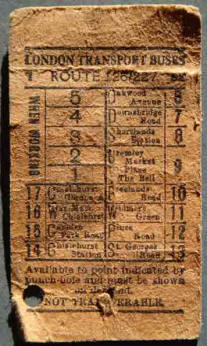 LONDON TRANSPORT BUSES
ROUTE 126/227
WHEN WORKING
5 Oakwood Avenue 6
4 Downsbridge Road 7
3 Shortlands Station 8
2 Bromley Market Place 9
1 The Bell
17 Road 10
16 Chislehurst Green 11
15 Park Road Road 12
14 Chislehurst Station St. Georges Road 13
Available to point indicated by
punch hole and must be shown
on demand.
NOT TRANSFERABLE